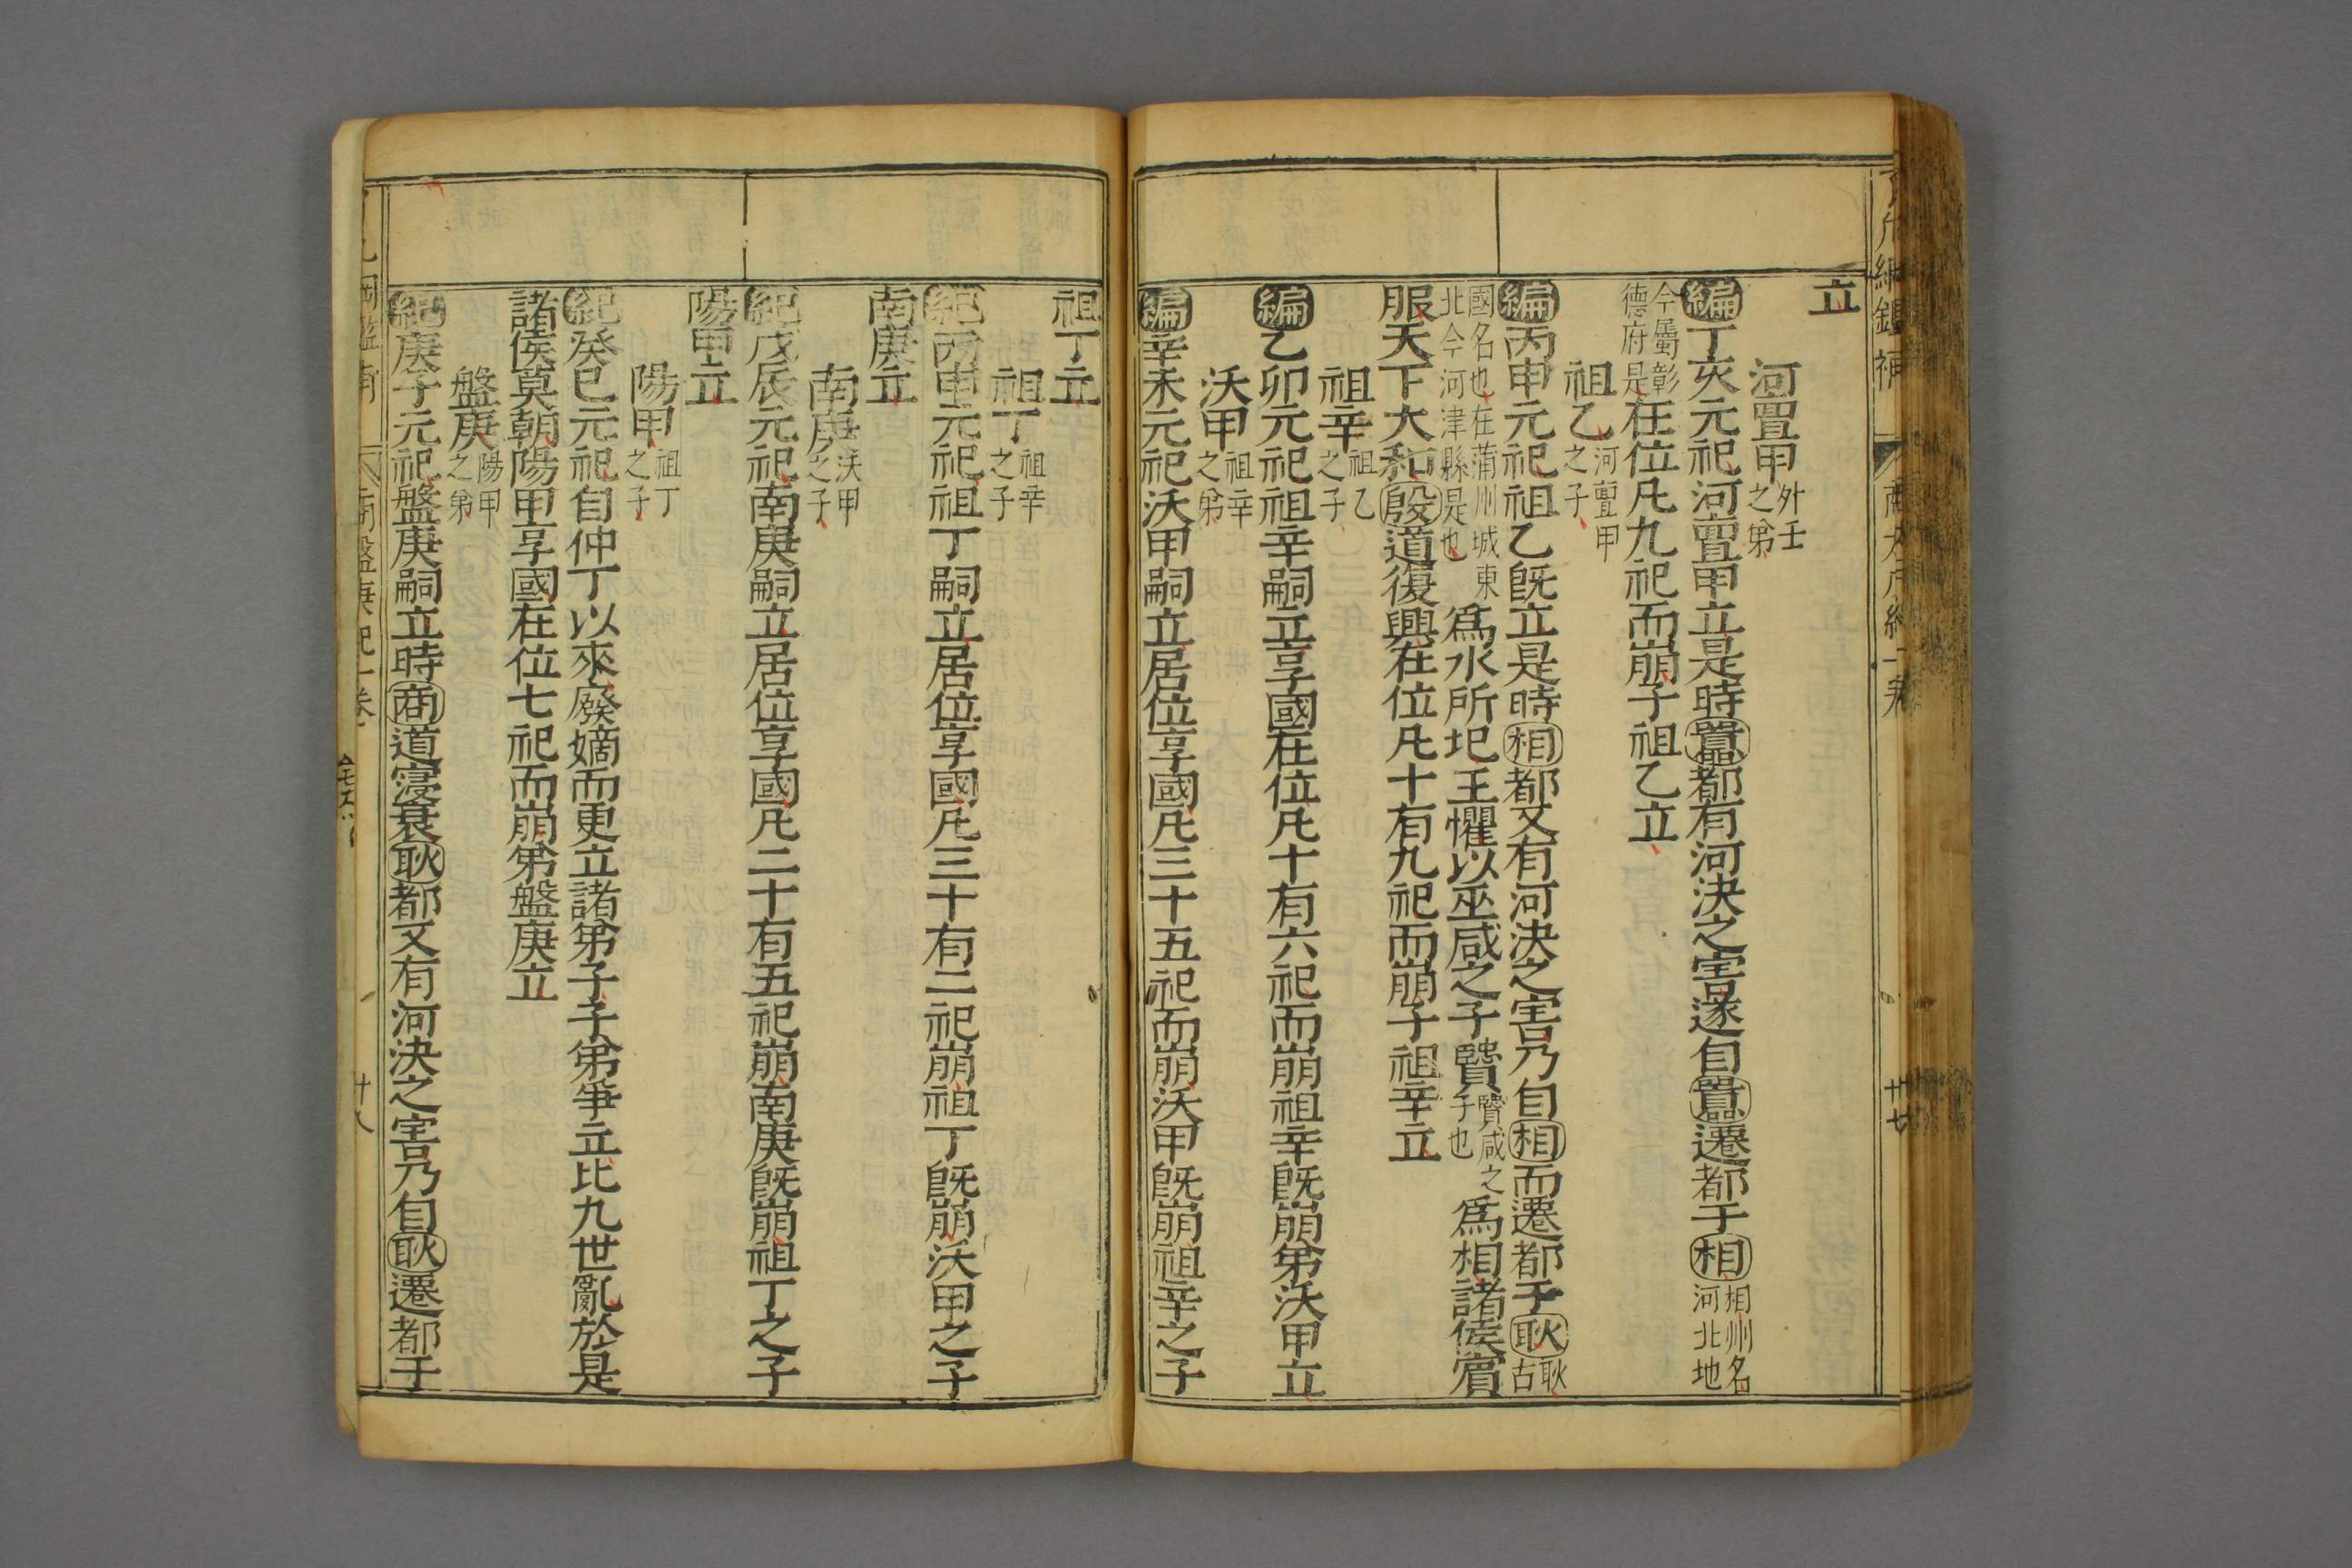 立
河亶甲外壬之弟
編丁亥元祀河亶甲立是時囂都有河決之害遂自囂遷都于相相州名河北地
今屬彰德府是在位凡九祀而崩子祖乙立
祖乙河亶甲之子
編丙申元祀祖乙旣立是時相都又有河決之害乃自相而遷都于耿耿古
國名也在蒲州城東北今河津縣是也爲水所圮王懼以巫咸之子賢賢咸之子也爲相諸侯賓
服天下大和殷道復興在位凡十有九祀而崩子祖辛立
祖辛祖乙之子
編乙卯元祀祖辛嗣立享國在位凡十有六祀而崩祖辛旣崩弟沃甲立
沃甲祖辛之弟
編辛未元祀沃甲嗣立居位享國凡三十五祀而崩沃甲旣崩祖辛之子
祖丁立
祖丁祖辛之子
紀丙申元祀祖丁嗣立居位享國凡三十有二祀崩祖丁旣崩沃甲之子
南庚立
南庚沃甲之子
紀戊辰元祀南庚嗣立居位享國凡二十有五祀崩南庚旣崩祖丁之子
陽甲立
陽甲祖丁之子
紀癸巳元祀自仲丁以來廢嫡而更立諸弟子子弟爭立比九世亂於是
諸侯莫朝陽甲享國在位七祀而崩弟盤庚立
盤庚陽甲之弟
紀庚子元祀盤庚嗣立時商道寖衰耿都又有河決之害乃自耿遷都于